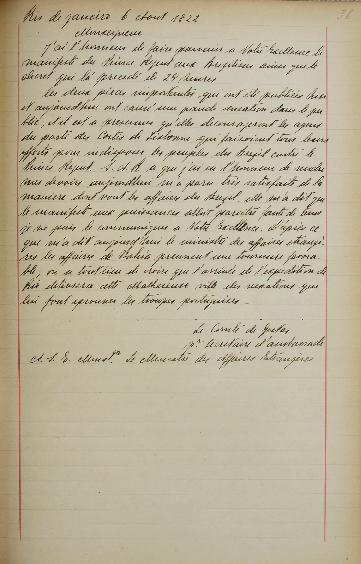 Rio de janeiro 6 aout 1822
Monseigneur
j'ai l'honneur de faire parvenir a Votre Excellence le
manifeste du Prince Regent aux Bresiliens ainsi que le
décret qui l'a precedé de 24 heures
Les deux pièces importantes qui ont été publiées hier
et aujourd'hui ont causé une grande sensation dans le pu
blic, et il est a presumer qu'elles decourageront les agens
du parti des Cortes de Lisbonne qui faisoient tous leurs
efforts pour indisposer les peuples du Bresil contre le
Prince Regent. S. A. R. a qui j'ai eu l'honneur de rendre
mes devoirs aujourd'hui m'a paru très satisfaite de la
maniere dont vont les affaires du Bresil, elle m'a dit que
le manifeste aux puissances allait paraitre, tant de
je ne puis le communiquer a Votre Excellence. D'après ce
que m'a dit aujourd'hui le ministre des affaires etrangè
res les affaires de Bahia prennent une tournure favora
ble, on a tout lieu de croire que l'arrivée de l'expedition de
Rio delivrera cette malheureuse ville des vexations que
lui font eprouver les troupes portugaises.
Le Comte de Gestas
pr. Secretaire d'ambassade
A. S. E. Monsr. Le Ministre des affaires Etrangères